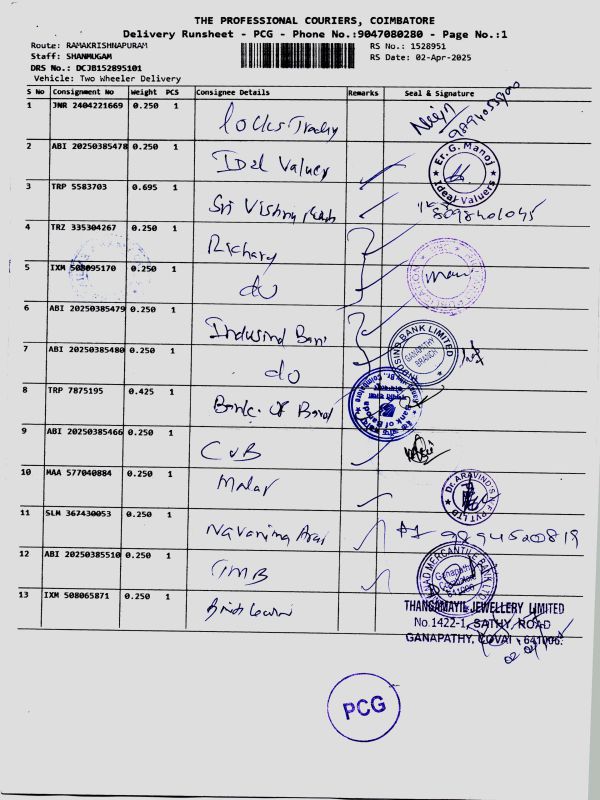 THE PROFESSIONAL COURIERS, COIMBATORE
Delivery Runsheet - PCG - Phone No.:9047080280 - Page No.:1
Route: RAMAKRISHNAPURAM
RS No.: 1528951
Staff: SHANMUGAM
RS Date: 02-Apr-2025
DRS No.: DCJB152895101
Vehicle: Two Wheeler Delivery
S No Consignment No Weight PCS Consignee Details Remarks Seal & Signature
1 JNR 2404221669 0.250 1
2 ABI 20250385478 0.250 1 Ideal Valuer
Er.G. Manoj
Ideal Valuers
3 TRP 5583703 0.695 1 Sri Vishnu 8098401045
4 TRZ 335304267 0.250 1 Richary
5 IXM 508095170 0.250 1 do
6 ABI 20250385479 0.250 1 Indusind Bank
INDUSIND BANK LIMITED
GANAPATHY
BRANCH
7 ABI 20250385480 0.250 1 do
8 TRP 7875195 0.425 1 Bank of Barod
Bank of Baroda
9 ABI 20250385466 0.250 1 CUB
10 MAA 577040884 0.250 1 Malar
Dr. ARAVIND'S IVF PVT LTD
11 SLM 367430053 0.250 1 Navanima Arai 9894520819
12 ABI 20250385510 0.250 1 TMB
MERCANTILE BANK LTD
Ganapathy
Coimbatore
641006
13 IXM 508065871 0.250 1
THANGAMAYIL JEWELLERY LIMITED
No.1422-1, SATHY, ROAD
GANAPATHY, COVAI - 641006.
PCG